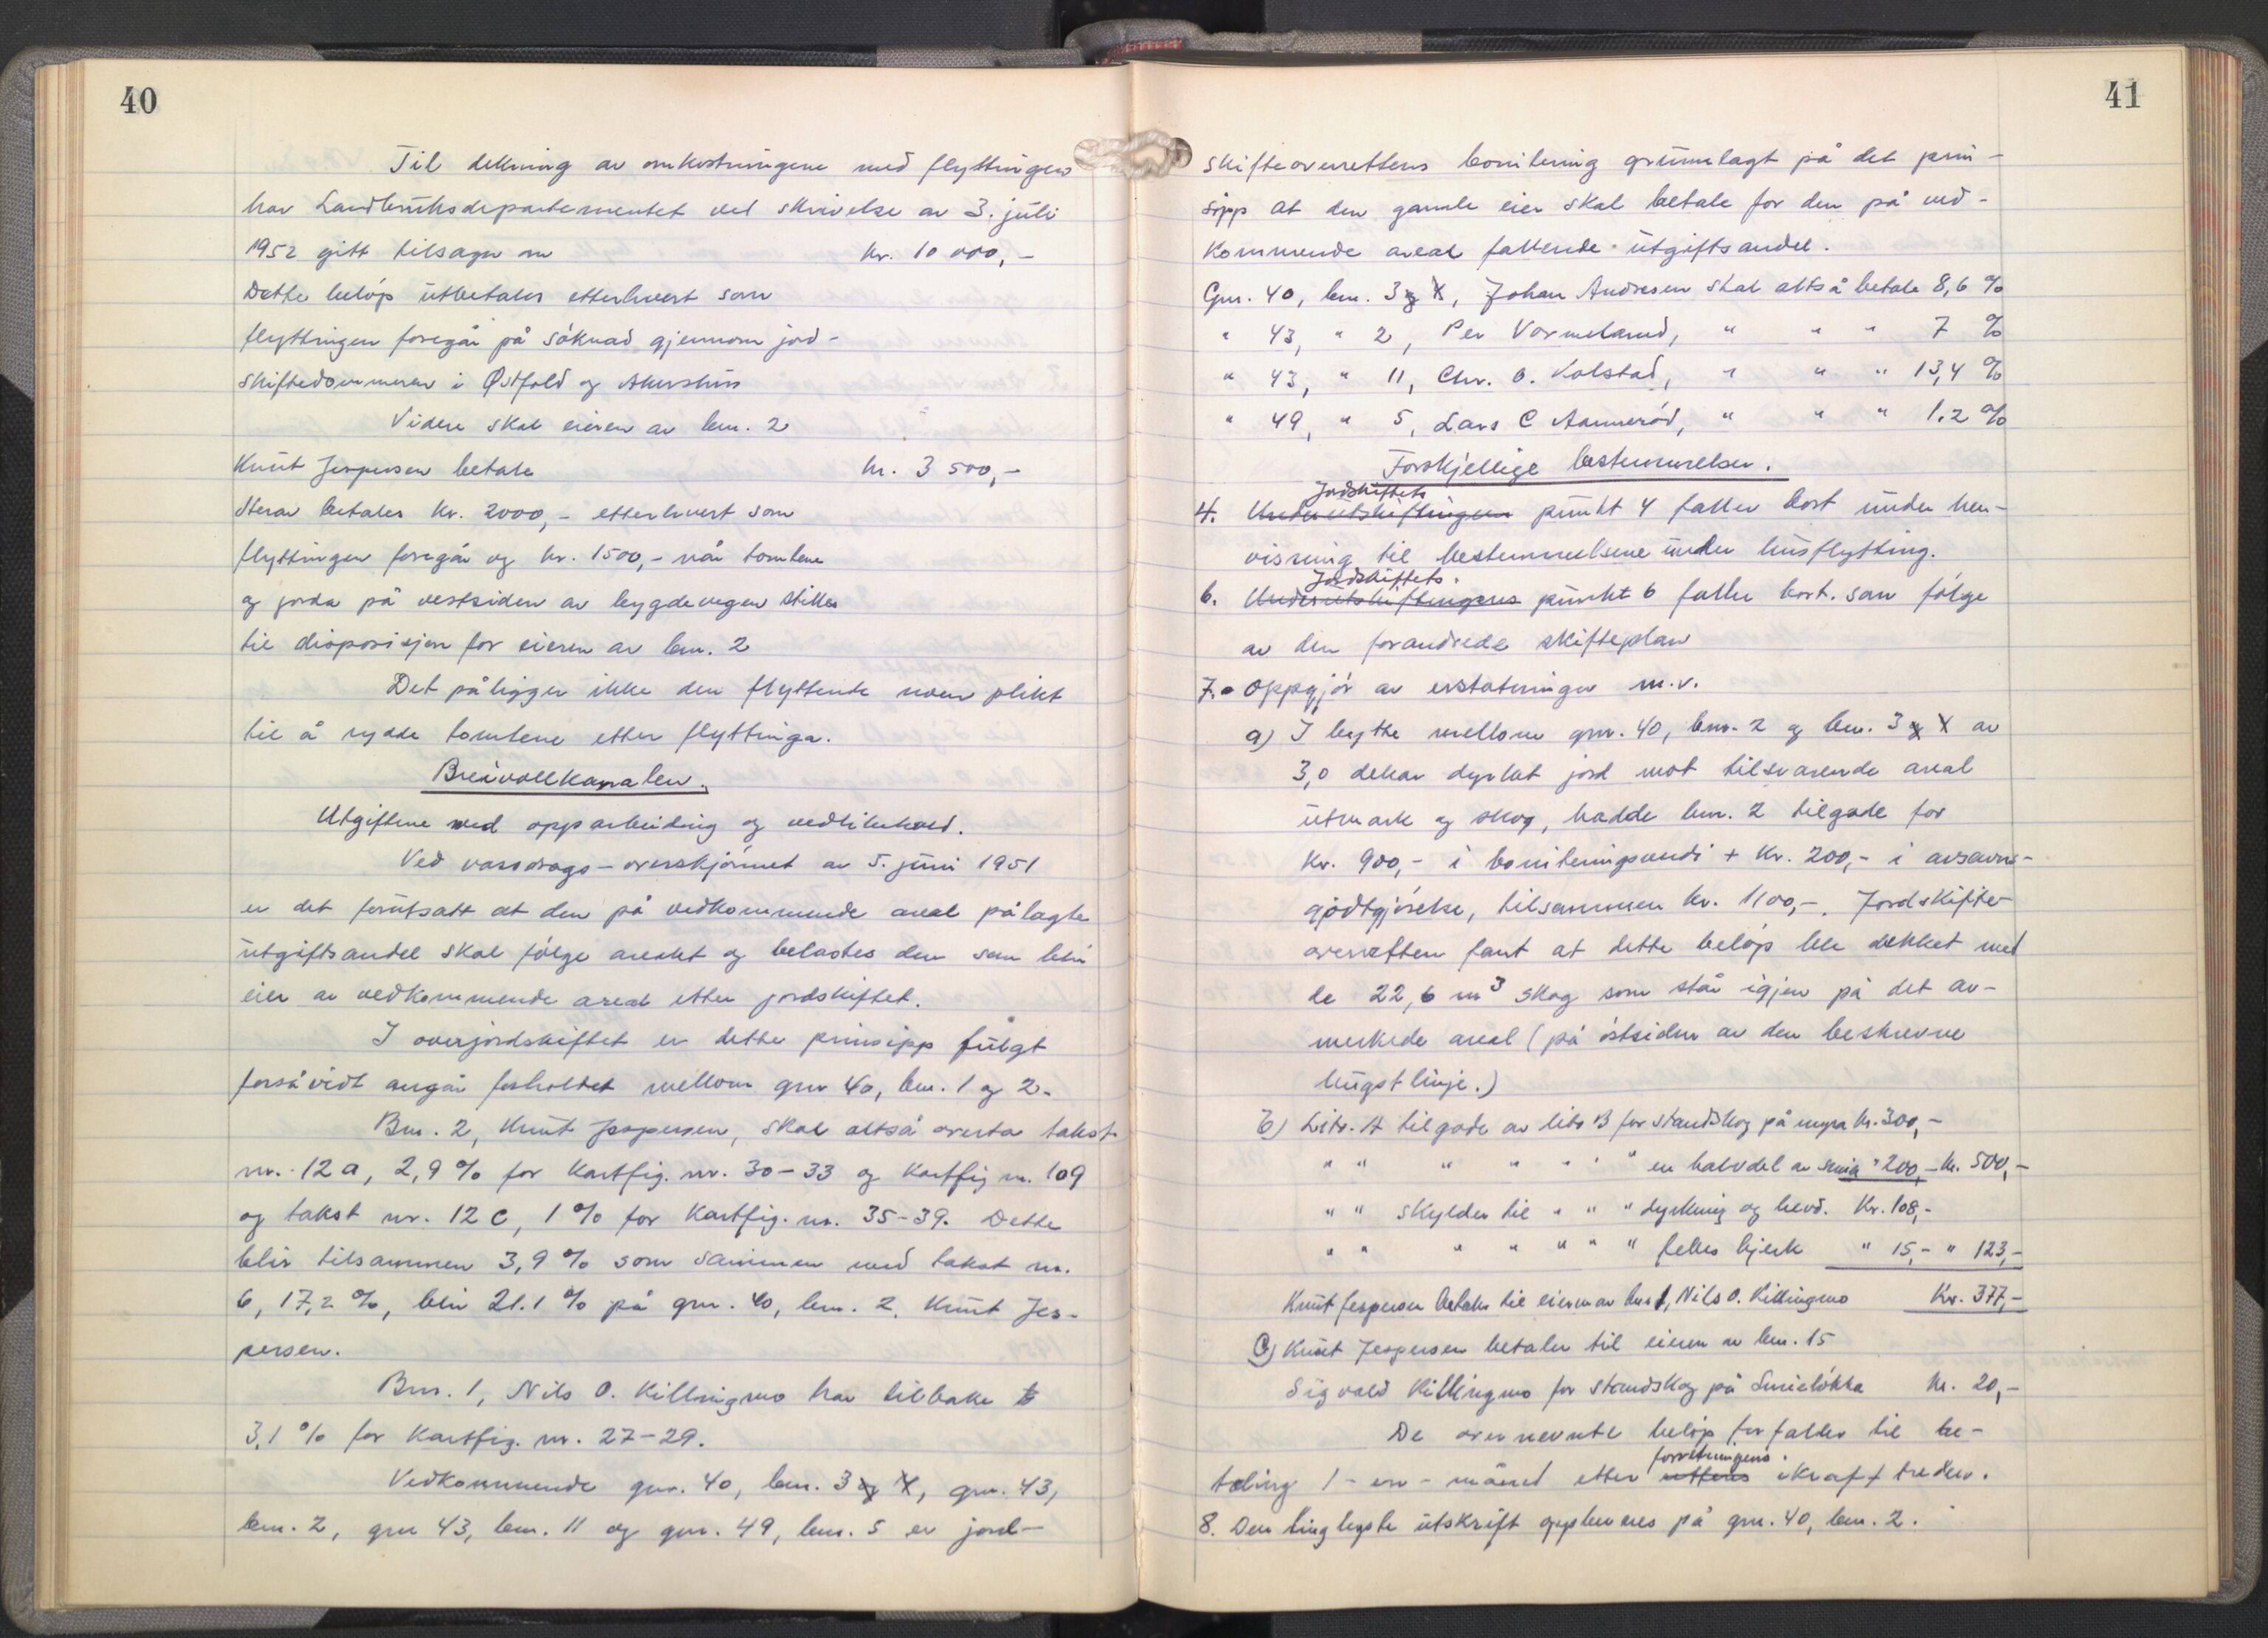 40
Til dekning av omkostningene med flyttingen
har Landbruksdepartementet ved skrivelse av 3. juli
1952 gitt tilsagn om kr. 10 000,-
Dette beløp utbetales etterhvert som
flyttingen foregår på søknad gjennom jord-
skiftedommeren i Østfold og Akershus
Videre skal eieren av bnr. 2
Knut Jespersen betale kr. 3 500,-
Herav betales kr. 2000,- etterhvert som
flyttingen foregår og kr. 1500,- når tomtene
og jorda på vestsiden av bygdevegen stilles
til disposisjon for eieren av bnr. 2
Det påligger ikke den flyttende noen plikt
til å rydde tomtene etter flyttinga.
Breivollkanalen.
Utgiftene ved opparbeiding og vedlikehold.
Ved vassdrags-overskjønnet av 5. juni 1951
er det forutsatt at den på vedkommende areal pålagte
utgiftsandel skal følge arealet og belastes den som blir
eier av vedkommende areal etter jordskiftet.
I overjordskiftet er dette prinsipp fulgt
forsåvidt angår forholdet mellom gnr 40, bnr. 1 og 2.
Bnr. 2, Knut Jespersen, skal altså overta takst
nr. 12 a, 2,9 % for kartfig. nr. 30-33 og kartfig nr. 109
og takst nr. 12 c, 1 % for kartfig. nr. 35-39. Dette
blir tilsammen 3,9 % som sammen med takst nr.
6, 17,2 %, blir 21.1 % på gnr. 40, bnr. 2. Knut Jes-
persen.
Bnr. 1, Nils O. Killingmo har tilbake
3,1 % for kartfig. nr. 27-29.
Vedkommende gnr. 40, bnr. 3 og 4, gnr. 43,
bnr. 2, gnr 43, bnr. 11 og gnr. 49, bnr. 5 er jord-
41
skifteoverrettens bonitering grunnlagt på det prin-
sipp at den gamle eier skal betale for den på ved-
kommende areal fallende utgiftsandel.
Gnr. 40, bnr. 3 og 4, Johan Andresen skal altså betale 8,6 %
" 43, " 2, Per Vormeland, " " " 7 %
" 43, " 11, Chr. O. Kolstad, " " " 13,4 %
" 49, " 5, Lars C Aamerød, " " " 1.2 %
Forskjellige bestemmelser.
Jordskiftets
4. Underutskiftningens punkt 4 faller bort under hen-
visning til bestemmelsene under husflytting.
Jordskiftets
6. Underutskiftningens punkt 6 faller bort som følge
av den forandrede skifteplan
7. Oppgjør av erstatninger m.v.
a) I bytte mellom gnr. 40, bnr. 2 og bnr. 3 og 4 av
3,0 dekar dyrket jord mot tilsvarende areal
utmark og skog, hadde bnr. 2 tilgode for
kr. 900,- i boniteringsverdi + kr. 200,- i avsavns-
godtgjørelse, tilsammen kr. 1100,-. Jordskifte-
overretten fant at dette beløp ble dekket med
de 22,6 m³ skog som står igjen på det av-
merkede areal (på østsiden av den beskrevne
hugstlinje.)
b) Litr. A tilgode av litr B for standskog på myra kr. 300,-
" " " " " " " en halvdel av smia " 200,- kr. 500,-
" " skylder til " " " dyrkning og hevd. Kr. 108,-
" " " " " " " felles bjerk " 15,- " 123,-
Knut Jespersen betaler til eieren av bnr 1, Nils O. Killingmo Kr. 377,-
c) Knut Jespersen betaler til eieren av bnr. 15
Sigvald Killingmo for standskog på Smieløkka kr. 20,-
De overnevnte beløp forfaller til be-
forretningens
taling 1 - en - måned etter rettens ikrafttreden.
8. Den tinglyste utskrift oppbevares på gnr. 40, bnr. 2.